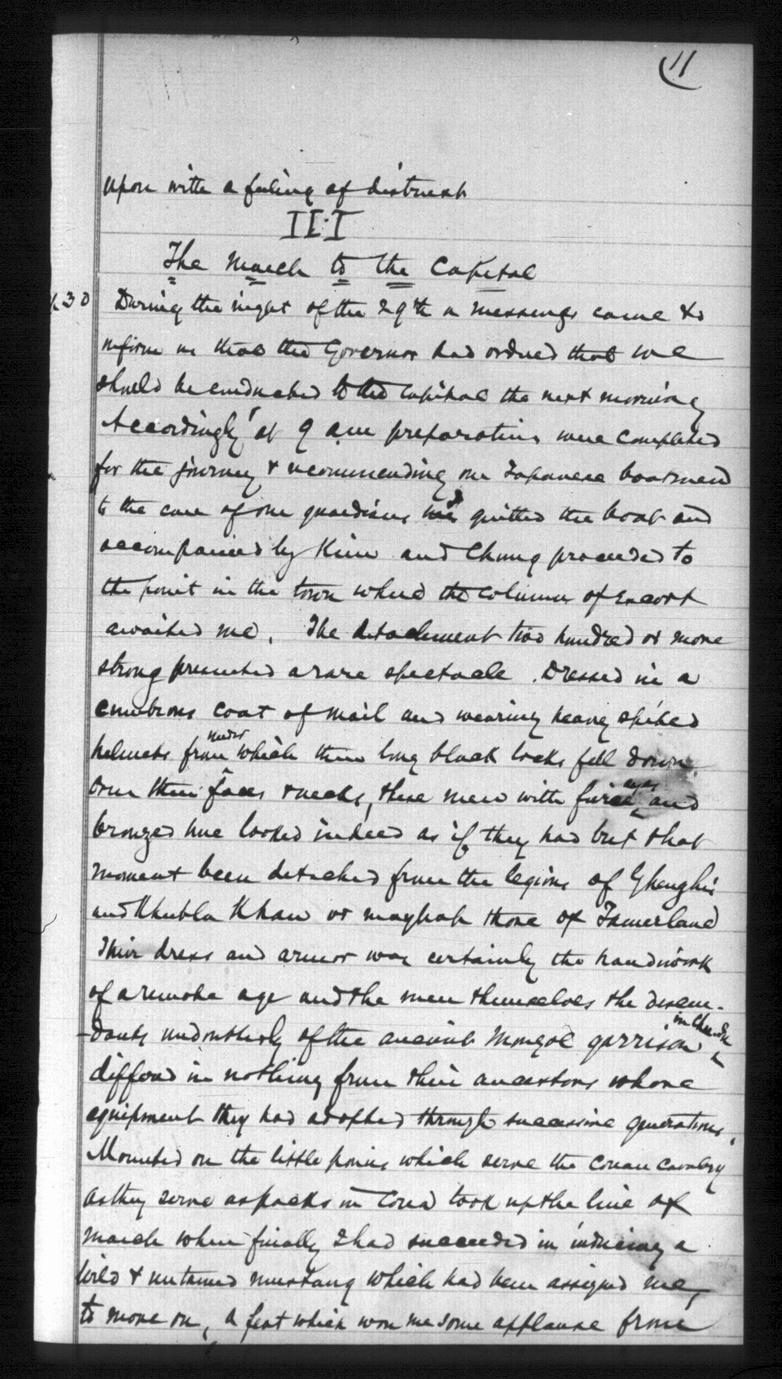 11
upon with a feeling of distrust
III
The March to the Capital
30 During the night of the 29th a messenger came to
inform us that the Governor had ordered that we
should be conducted to the Capital the next morning
Accordingly at 9 am preparations were completed
for the journey & recommending our Japanese boatmen
to the care of our guardians we quitted the boat and
accompanied by Kim and Chung proceeded to
the point in the town where the column of escort
awaited me. The detachment two hundred or more
strong presented a rare spectacle. Dressed in a
cumbrous coat of mail and wearing heavy spiked
helmets from under which their long black locks fell down
over their faces & necks, these men with fierce eyes and
bronzed hue looked indeed as if they had but that
moment been detached from the legions of Ghenghis
and Khubla Khan or mayhap those of Tamerland
Their dress and armor was certainly the handiwork
of a remote age and the men themselves the descen-
dants undoubtedly of the ancient Mongol garrison in
differed in nothing from their ancestors whose
equipment they had adopted through successive generations.
Mounted on the little ponies which serve the Corean cavalry
as they serve as packs in Corea took up the line of
march when finally I had succeeded in inducing a
wild & untamed mustang which had been assigned me,
to move on, a feat which won me some applause from